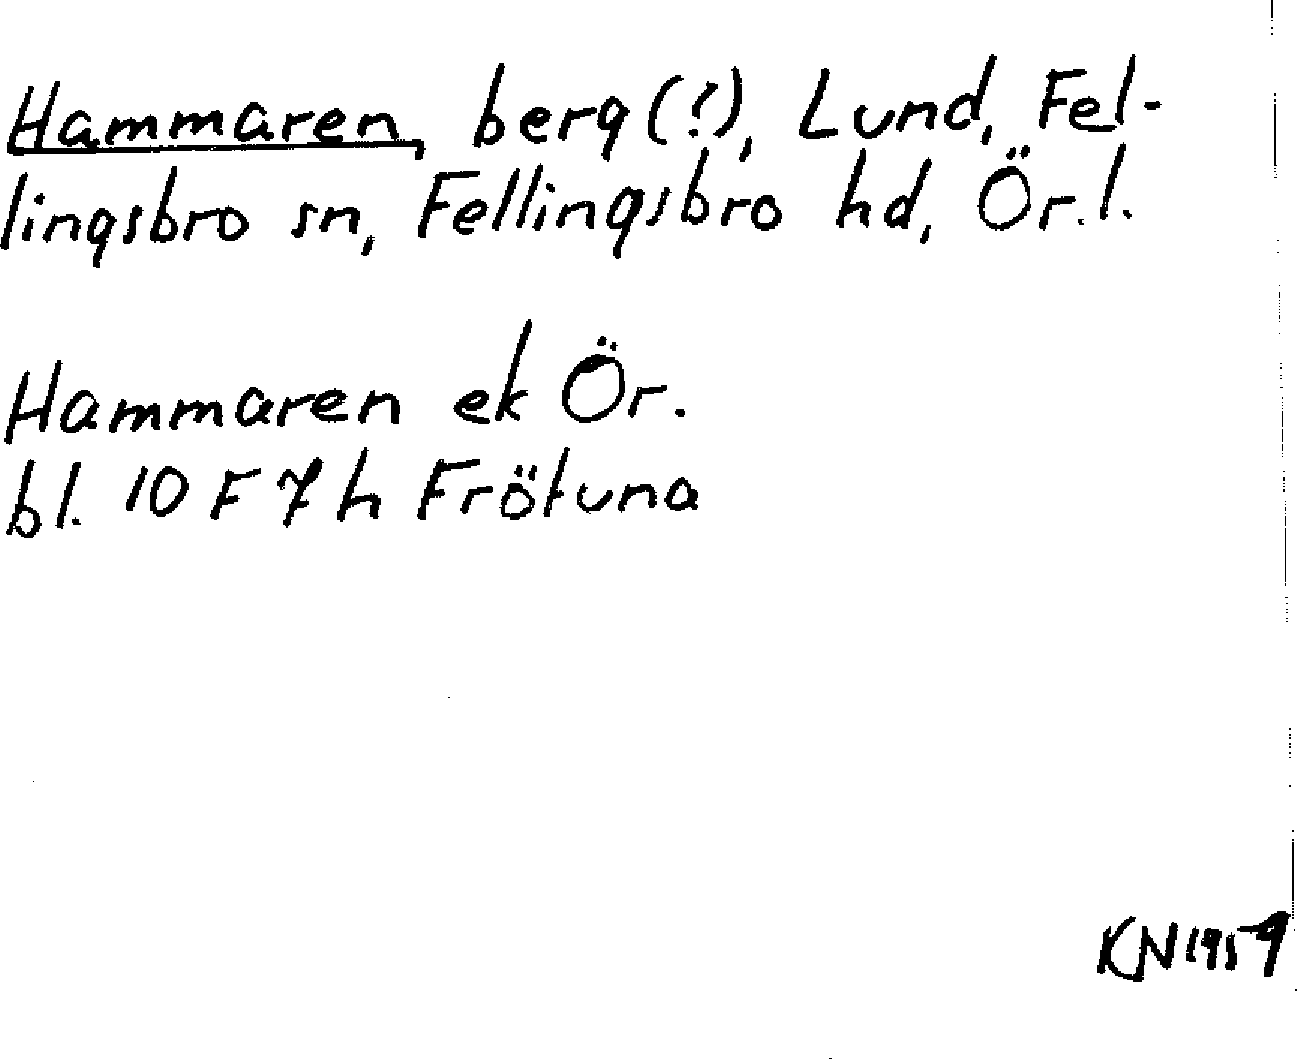 Hammaren, berg (?), Lund, Fel-
lingsbro sn, Fellingsbro hd, Ör.l.
Hammaren ek Ör.
bl. 10 F 7 h Frötuna
KN 1959